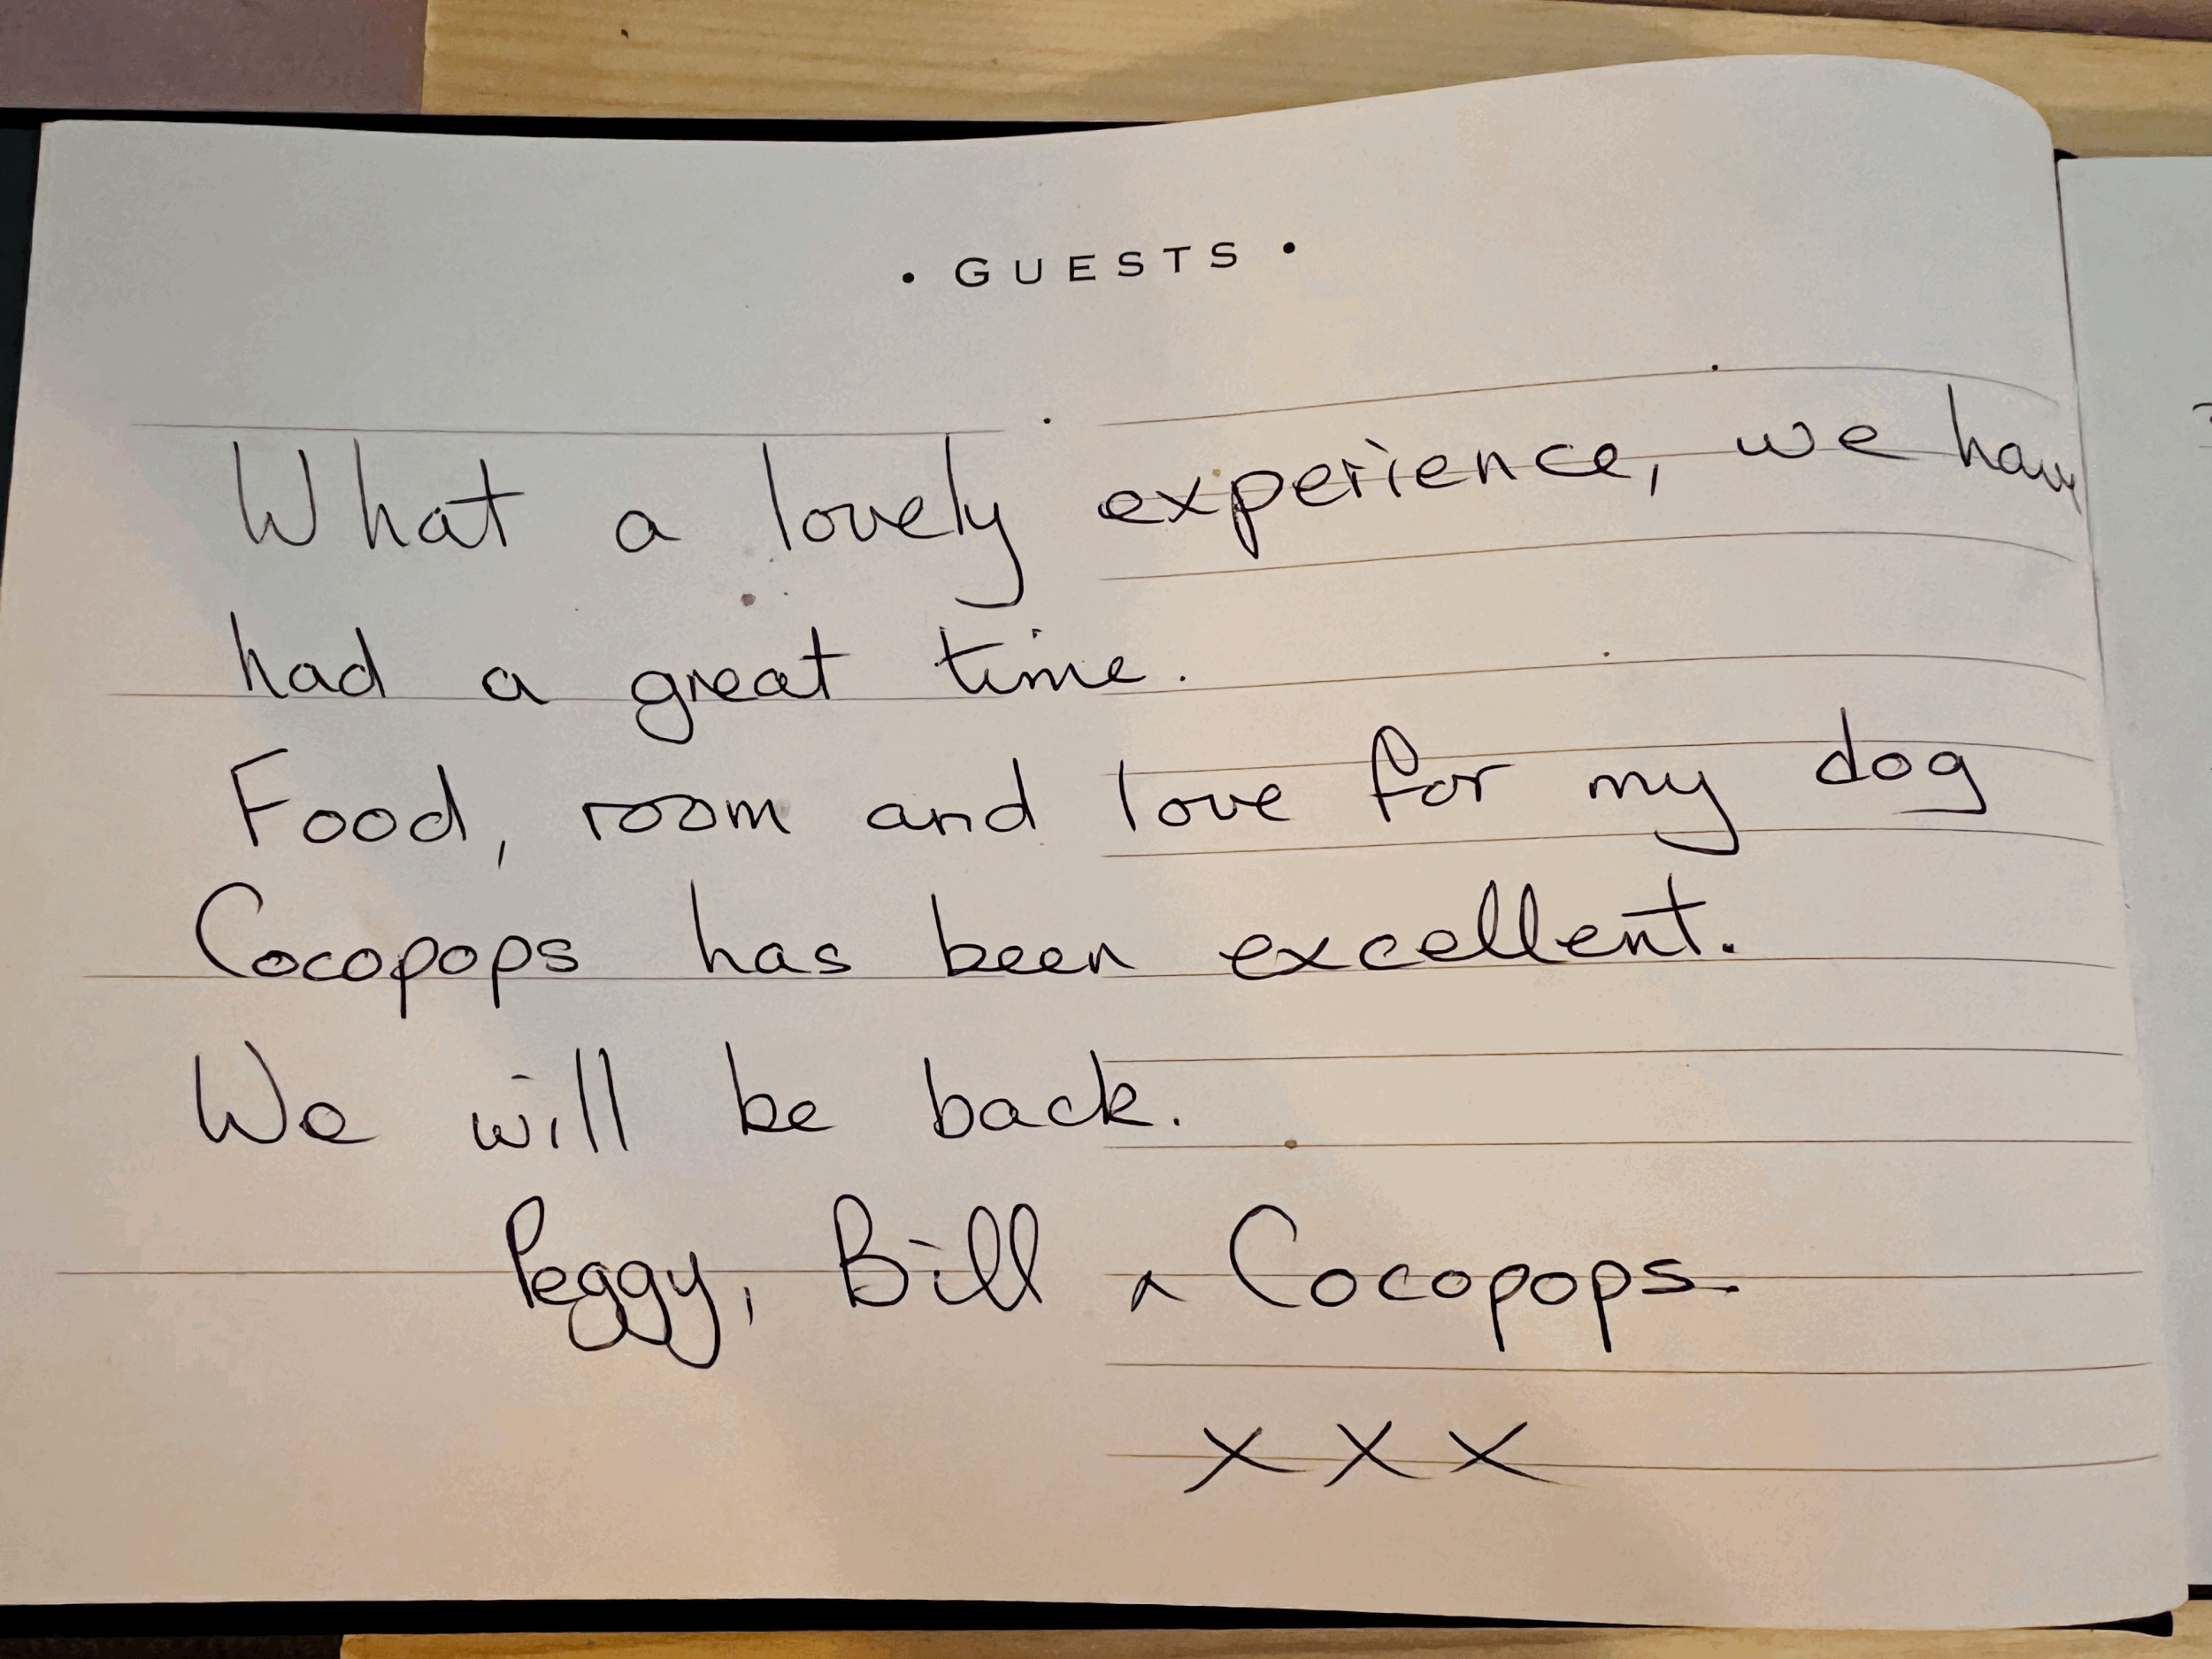 • GUESTS •
What a lovely experience, we have
had a great time.
Food, room and love for my dog
Cocopops has been excellent.
We will be back.
Peggy, Bill & Cocopops.
xxx